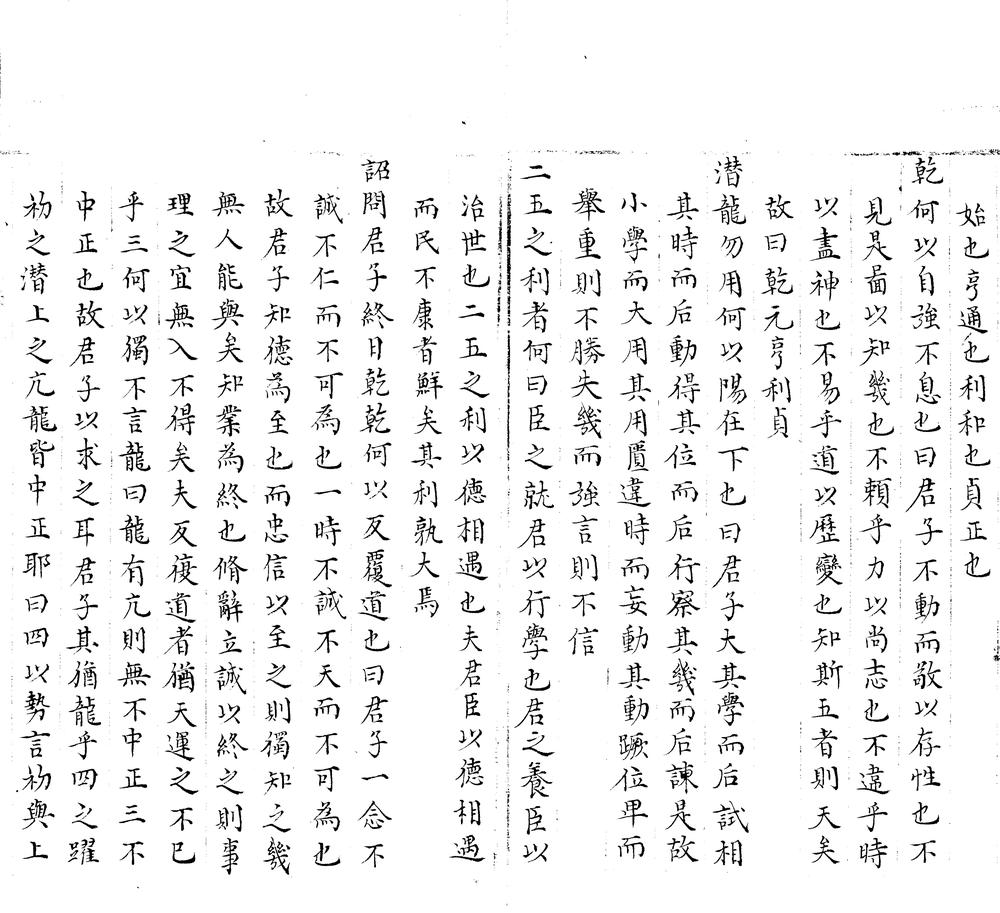 始也亨通也利和也貞正也
乾何以自強不息也曰君子不動而敬以存性也不
見是啚以知幾也不賴乎力以尚志也不違乎時
以盡神也不易乎道以歷變也知斯五者則天矣
故曰乾元亨利貞
潛龍勿用何以陽在下也曰君子大其學而后試相
其時而后動得其位而后行察其幾而后諫是故
小學而大用其用匱違時而妄動其動蹶位卑而
舉重則不勝失幾而強言則不信
二五之利者何曰臣之就君以行學也君之養臣以
治世也二五之利以德相遇也夫君臣以德相遇
而民不康者鮮矣其利孰大焉
詔問君子終日乾乾何以反覆道也曰君子一念不
誠不仁而不可為也一時不誠不天而不可為也
故君子知德為至也而忠信以至之則獨知之幾
無人能與矣知業為終也脩辭立誠以終之則事
理之宜無入不得矣夫反復道者猶天運之不已
乎三何以獨不言龍曰龍有亢則無不中正三不
中正也故君子以求之耳君子其猶龍乎四之躍
初之潛上之亢龍皆中正耶曰四以勢言初與上